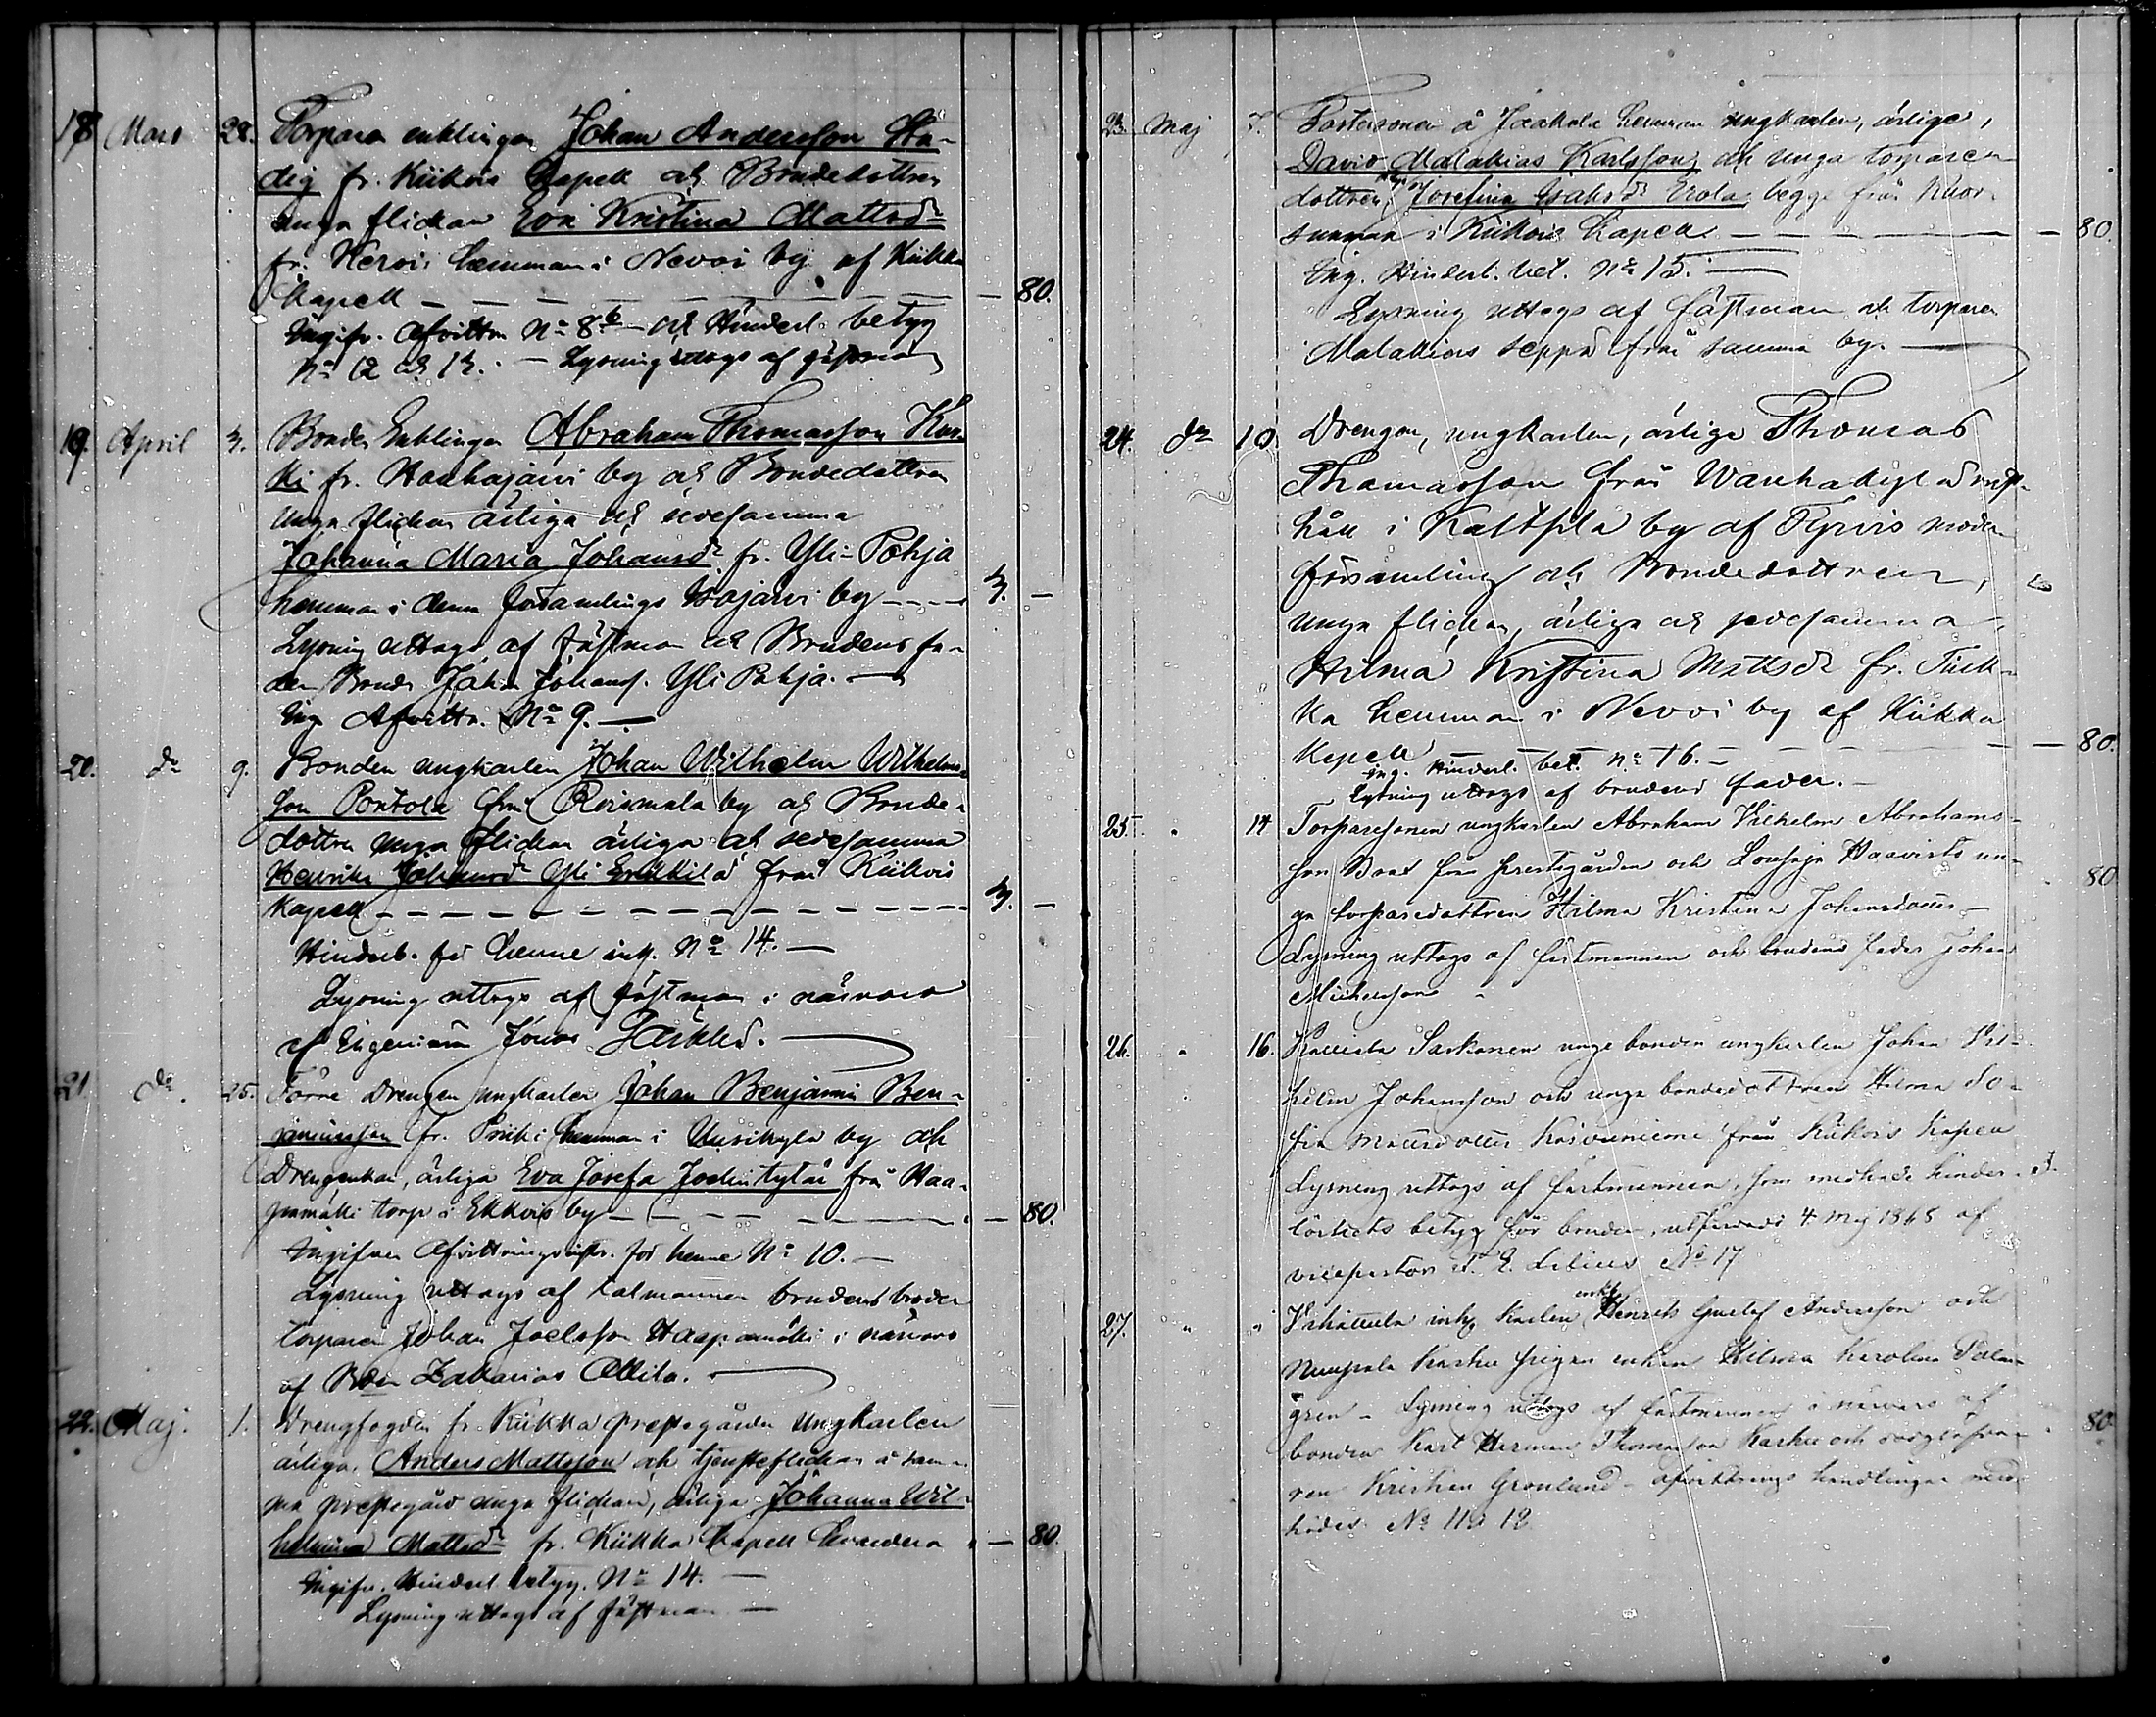 18 Mars 28. Torparen enklingen Johan Andersson Sta-
dig fr. Kiikois Kapell och Bondedottren
unga flickan Eva Kristina Mattsdr
fr. Hervi hemman i Nevoi by af Kiikka
Kapell — — — — — — 80.
Ingifv. Afvittr. No 8 b och Hinderl. betyg
No 12 och 13. — Lysning uttogs af fästman
19. April 3. Bonden Enklingen Abraham Thomasson Kos-
ki fr. Houhajärvi by och Bondedottren
unga flickan ärliga och sedesamma
Johanna Maria Johansdr fr. Yli-Pohja
hemman i denna församlings Isojärvi by — — 3. —
Lysning uttogs af fästman och Brudens fa-
der Bonden Johan Johanss. Yli Pohja. —
Ing. Afvittr. No 9. —
20. do 9. Bonden ungkarlen Johan Wilhelm Wilhelms-
son Pontola från Roismala by och Bonde-
dottren unga flickan ärliga och sedesamma
Henrika Johansdr Yli Erkkilä från Kiikois
Kapell — — — — — — 3. —
Hinderl. för henne inl. No 14. —
Lysning uttogs af fästman i närvaro
af Jonas
21 do. 25. Förre Drengen ungkarlen Johan Benjamin Ben-
jaminsson fr. Priiki hemman i Uusikylä by och
Drengenkan, ärliga Eva Josefa Joelintytär från Haa-
pamäki torp i Ekkois by — — — 80.
Ingifven Afvittringsinstr. för henne No 10. —
Lysning uttogs af talmannen brudens broder
torparen Johan Joelsson Haapamäki i närvaro
af Zakarias Ollila. —
22. Maj. 1. Drengfogden fr. Kiikka prestgården ungkarlen
ärliga Anders Mattsson och tjensteflickan å sam-
ma prestegård unga flickan, ärliga Johanna Wil-
helmina Mattsdr fr. Kiikka Kapell — 80.
Ingifv. Hinderl. betyg. No 14. —
Lysning uttogs af fästman —
23. Maj 7. Fostersonen å Jaakola hemman ungkarlen, ärlige,
David Malakias Karlsson, och unga torpare
dottren, Josefina Isaksdr Erola begge från Kuor-
sumaa i Kiikois Kapell — — — 80.
Ing. Hinderl. bet. No 15. —
Lysning uttogs af fästman och torparen
Malakias Seppä från samma by. —
24. do 10. Drengen, ungkarlen, ärlige Thomas
Thomasson från Wanhakylä
håll i Kaltsila by af Tyrvis moder
församling och Bondedottren,
unga flickan, ärliga och sedesamma
Hilma Kristina Mattsdr fr. Tuik-
ka hemman i Nevoi by af Kiikka
Kapell — — — — 80.
Ing. Hinderl. bet. No 16. —
Lysning uttogs af brudens fader. —
25. " 14 Torparesonen ungkarlen Abraham Vilhelm Abrahams-
son från prestegården och Haavisto un-
ga torparedottren Hilma Kristina Johansdotter — 80
Lysning uttogs af fästmannen och brudens fader Johan
Michelsson
26. " 16. Sarkonen unge bonden ungkarlen Johan Vil-
helm Johansson och unga bondedottren Hilma So-
fia Mattsdotter Koivuniemi från Kiikois Kapell
Lysning uttogs af fästmannen, som medhade hinder- 3.
löshets betyg för bruden, utfärdadt 4 Maj 1868 af
vicepastor F. E. Lilius No 17
27. " " inh. karlen enkl. Henrik Gustaf Andersson och
Karhu pigan enkan Hilma Karolina Palm-
gren — Lysning uttogs af fästmannen i närvaro af
bonden Karl Herman Thomasson Karhu och 80
Kristian Grönlund — afvittrings handlingar med-
hades. No 11 o 12.